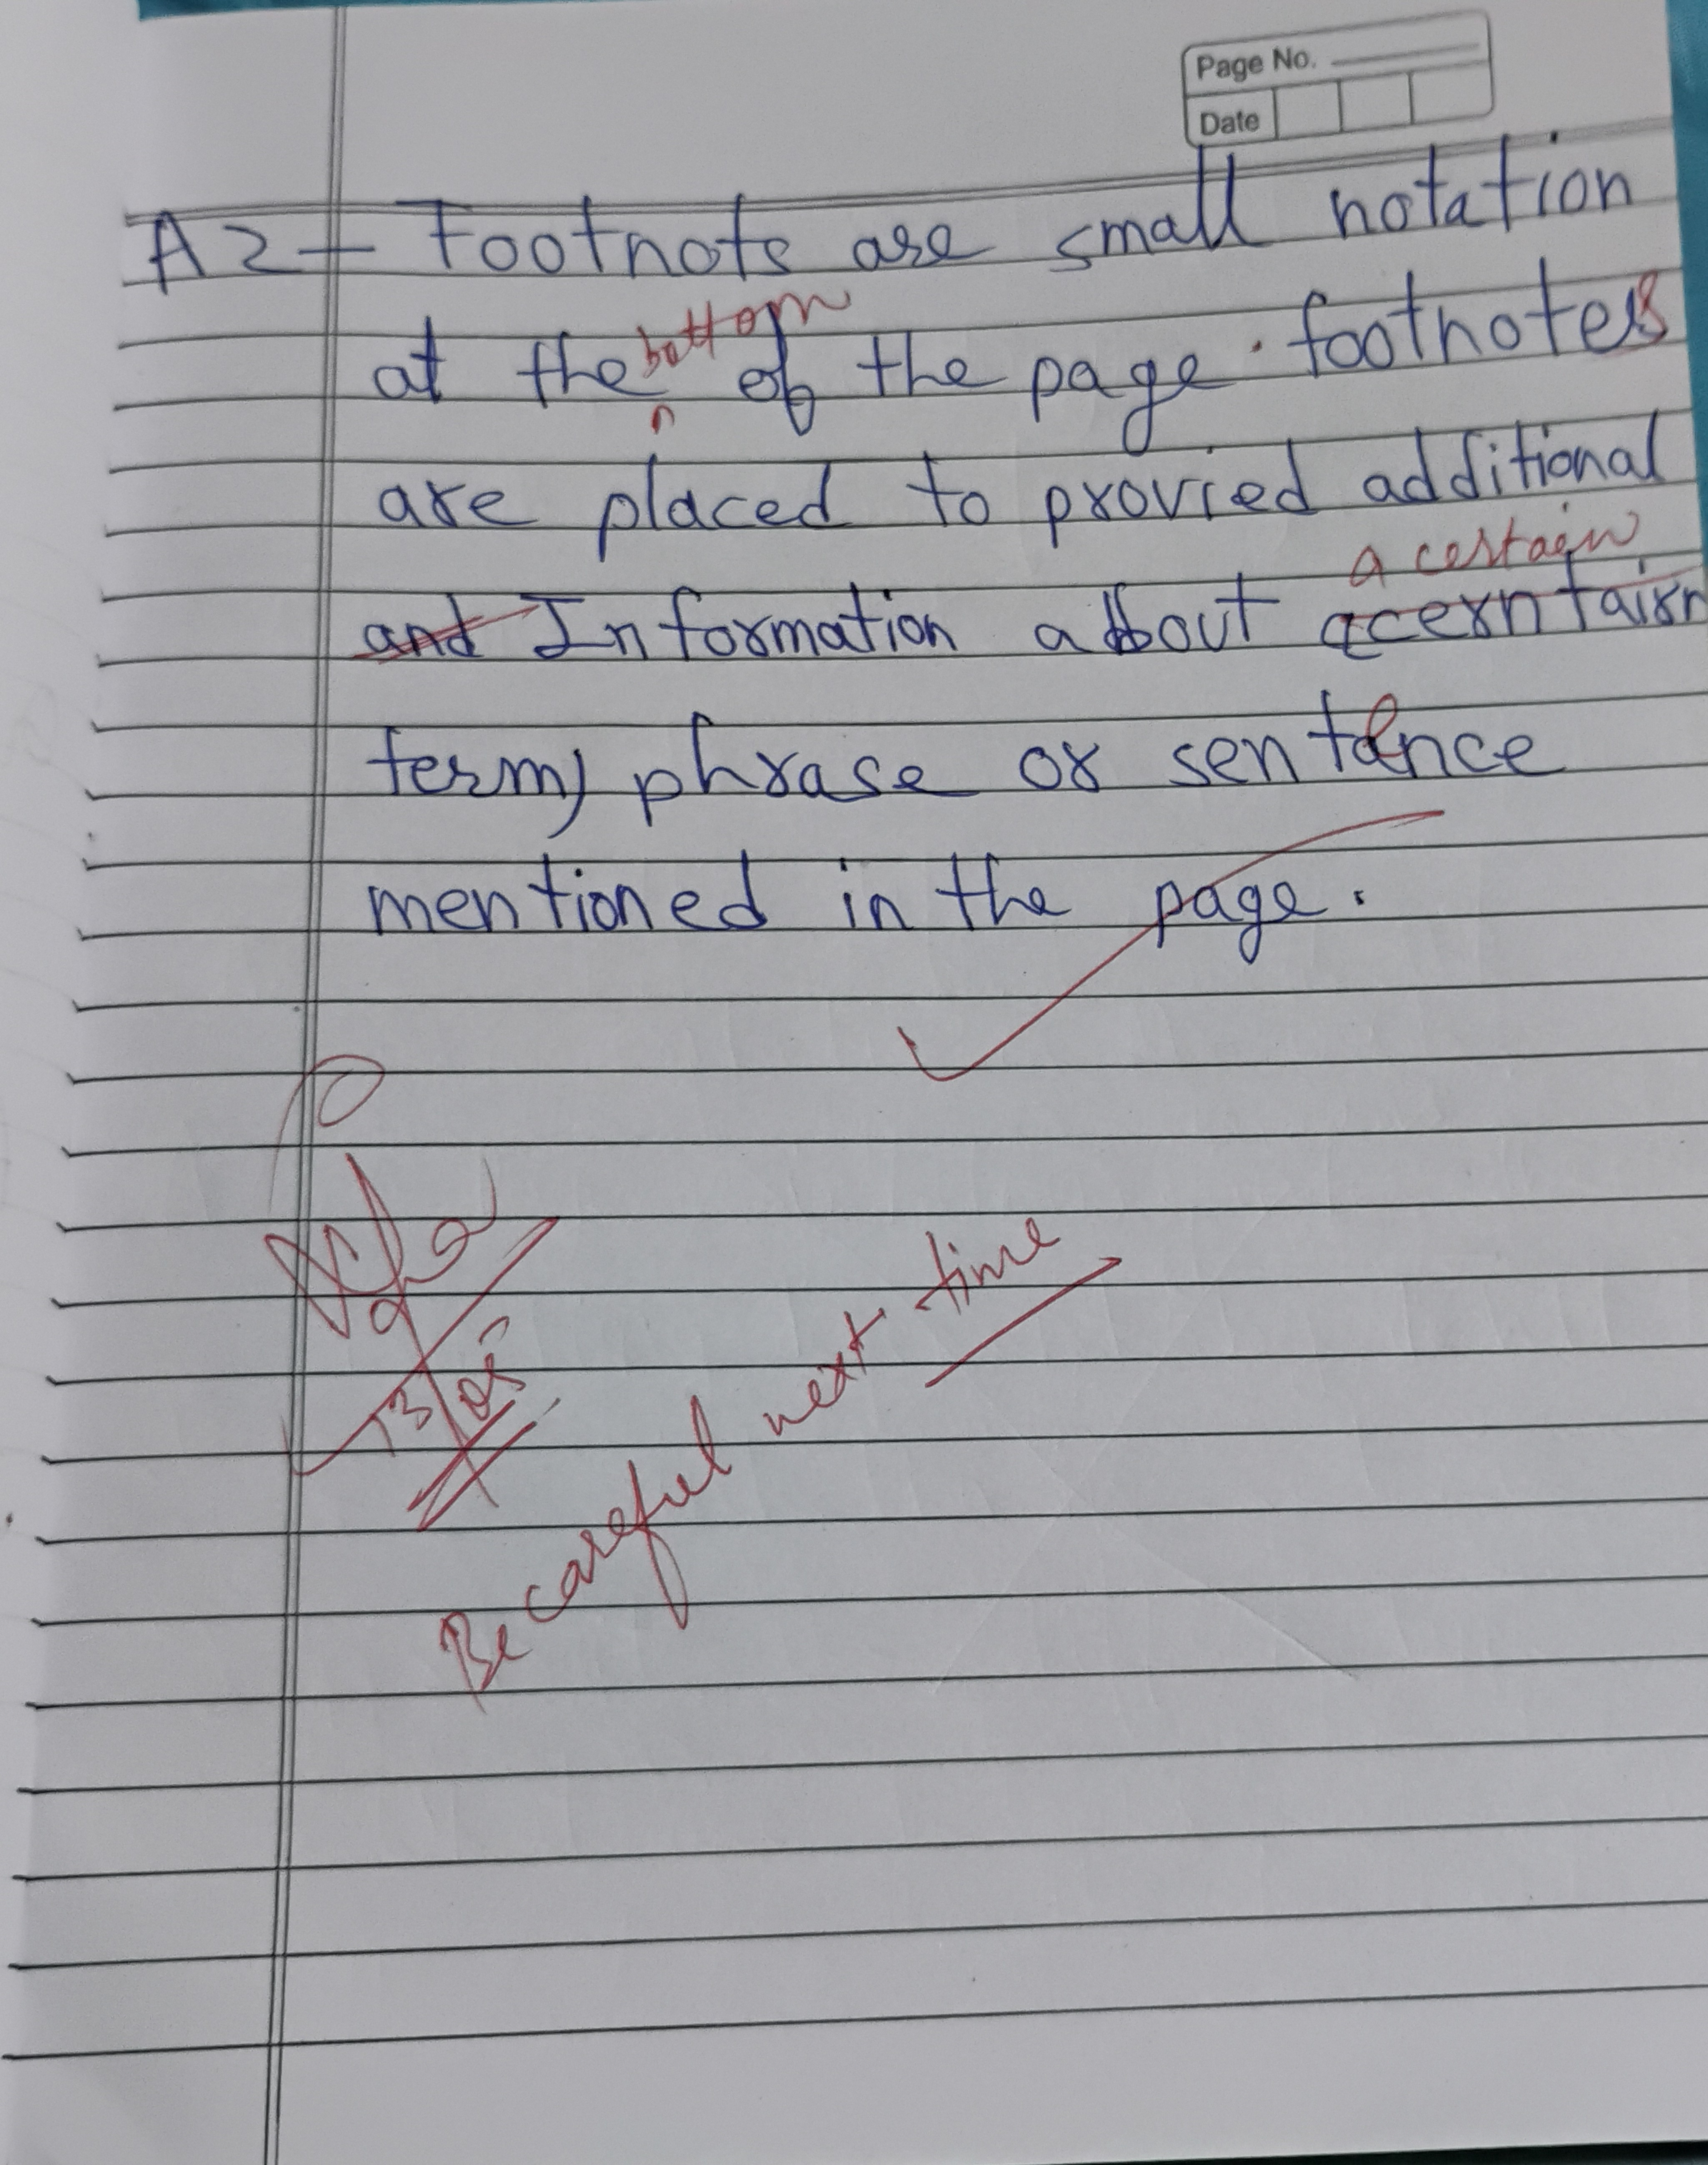 Page No.
Date
A2- Footnots are small notation
bottom
at the of the page. footnotes
are placed to provied additional
a certain
and Information about acerntairn
term, phrase or sentence
mentioned in the page.
13/05
Be careful next time